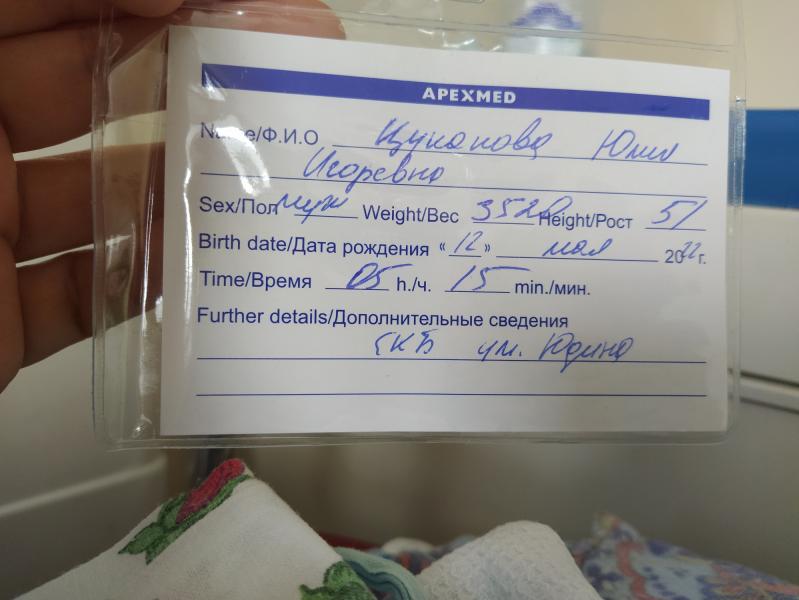 APEXMED
Name/Ф.И.О Цуканова Юлия
Игоревна
Sex/Пол муж Weight/Вес 3520 Height/Рост 51
Birth date/Дата рождения «12» мая 2022г.
Time/Время 05 h./ч. 15 min./мин.
Further details/Дополнительные сведения
ГКБ им. Юдина